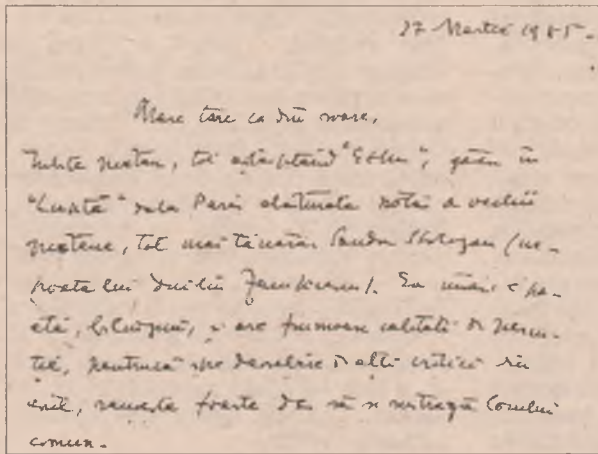 27 Martie 1985.
Mare tare ca din soare,
Iubite prieten, tot așteptând "Ethos", găsesc în
"Lupta" dela Paris alăturata notă a vechii
prietene, tot mai tânăra Sanda Stolojan (ne-
poata lui Duiliu Zamfirescu). Ea însăși e poe-
tă, bilingvă, și are frumoase calități de
pentrucă spre deosebire de alți critici din
exil, reușește foarte des să se sustragă locului
comun.